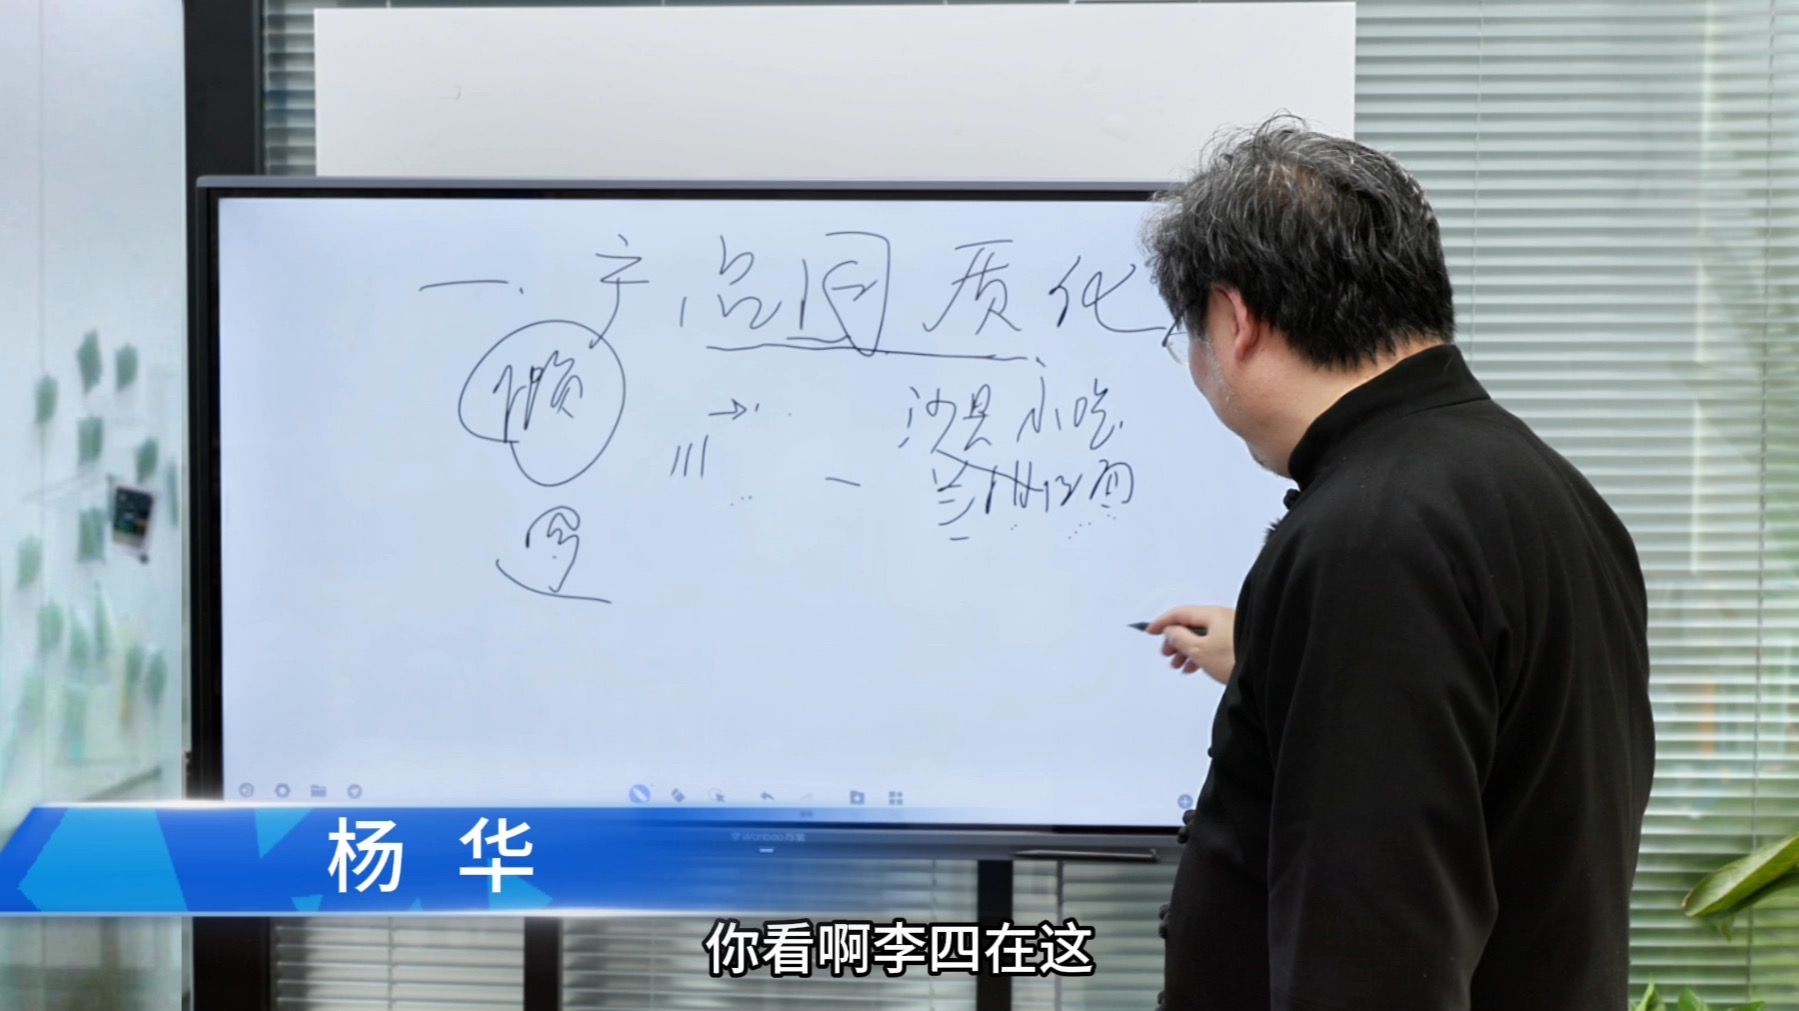 一.产品同质化
沙县小吃
兰州拉面
杨 华
你看啊李四在这